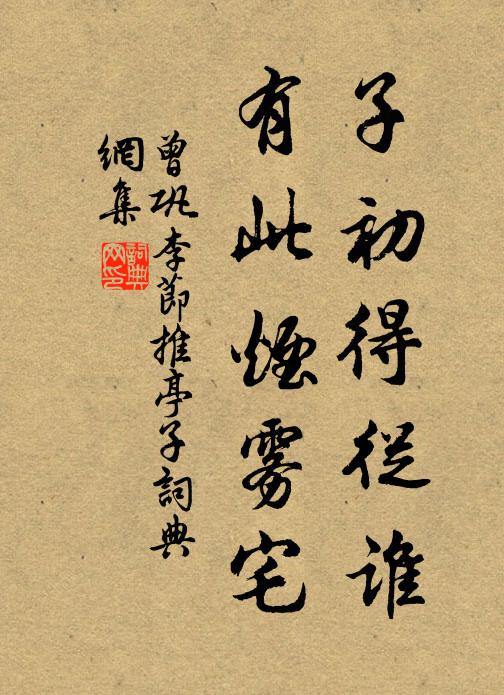 子初得從誰
有此煙雾宅
曾巩李節推亭子詞典
網集
詞典
网印